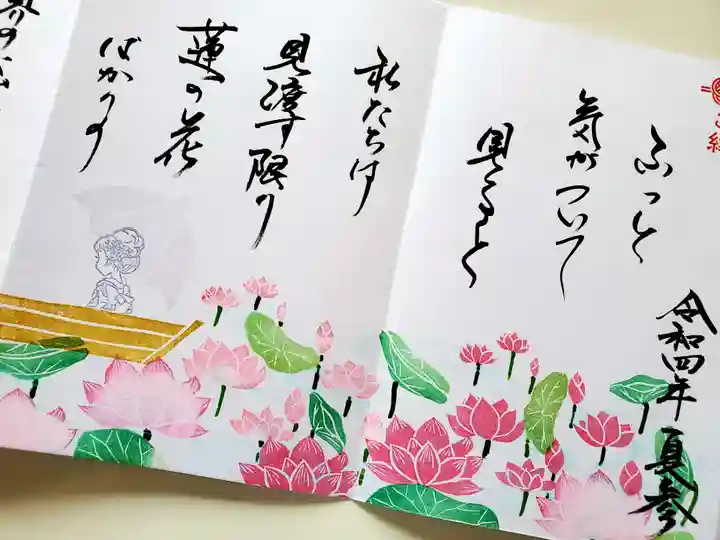 ふっと
気がついて
見ると
私たちは
見渡す限り
蓮の花
ばかりの
令和四年 夏参